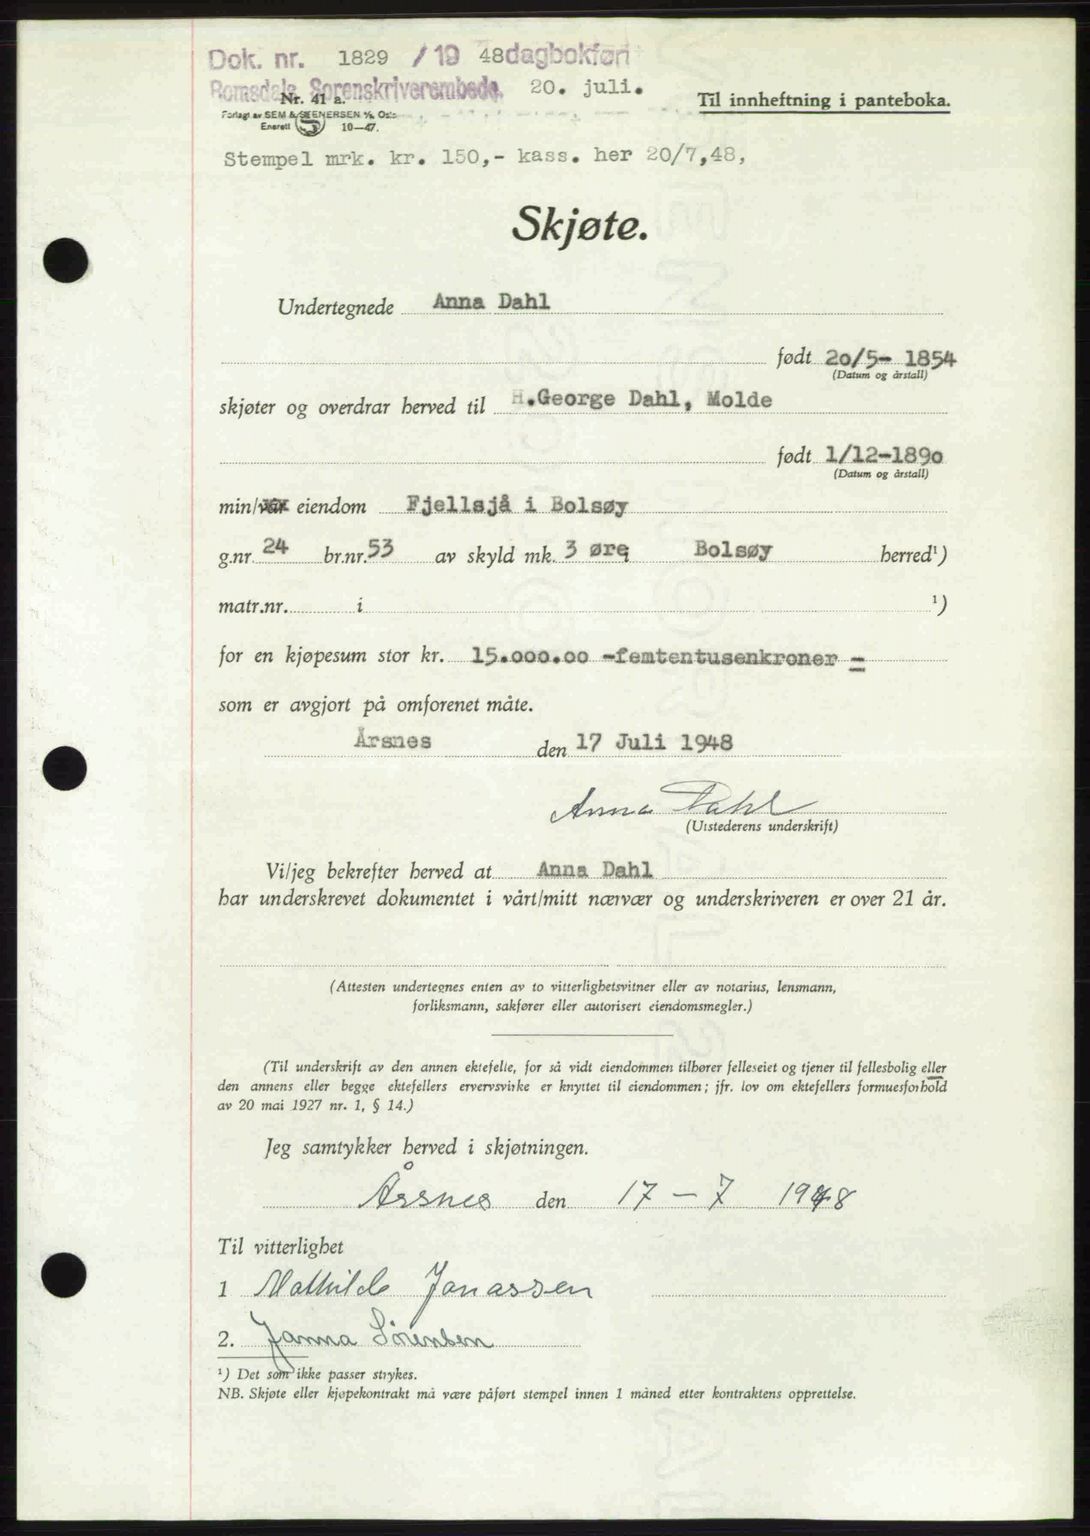 Dok. nr. 1829 / 19 48 dagbokført
Romsdals Sorenskriverembede. 20. juli.
Nr. 41 a.
Til innheftning i panteboka.
Forlagt av SEM & STENERSEN A/S, Oslo
Enerett 10—47.
Stempel mrk. kr. 150,- kass. her 20/7,48,
Skjøte.
Undertegnede Anna Dahl
født 20/5- 1854
(Datum og årstall)
skjøter og overdrar herved til H.George Dahl, Molde
født 1/12-1890
(Datum og årstall)
min/vår eiendom Fjellsjå i Bolsøy
g.nr. 24 br.nr. 53 av skyld mk. 3 øre Bolsøy herred¹)
matr.nr. i ¹)
for en kjøpesum stor kr. 15.000.00 -femtentusenkroner =
som er avgjort på omforenet måte.
Årsnes den 17 Juli 1948
Anna Dahl
(Utstederens underskrift)
Vi/jeg bekrefter herved at Anna Dahl
har underskrevet dokumentet i vårt/mitt nærvær og underskriveren er over 21 år.
(Attesten undertegnes enten av to vitterlighetsvitner eller av notarius, lensmann,
forliksmann, sakfører eller autorisert eiendomsmegler.)
(Til underskrift av den annen ektefelle, for så vidt eiendommen tilhører felleseiet og tjener til fellesbolig eller
den annens eller begge ektefellers ervervsvirke er knyttet til eiendommen; jfr. lov om ektefellers formuesforhold
av 20 mai 1927 nr. 1, § 14.)
Jeg samtykker herved i skjøtningen.
Årsnes den 17 – 7 1948
Til vitterlighet
1 Mathilde Jonassen
2. Janna Sørensen
¹) Det som ikke passer strykes.
NB. Skjøte eller kjøpekontrakt må være påført stempel innen 1 måned etter kontraktens opprettelse.